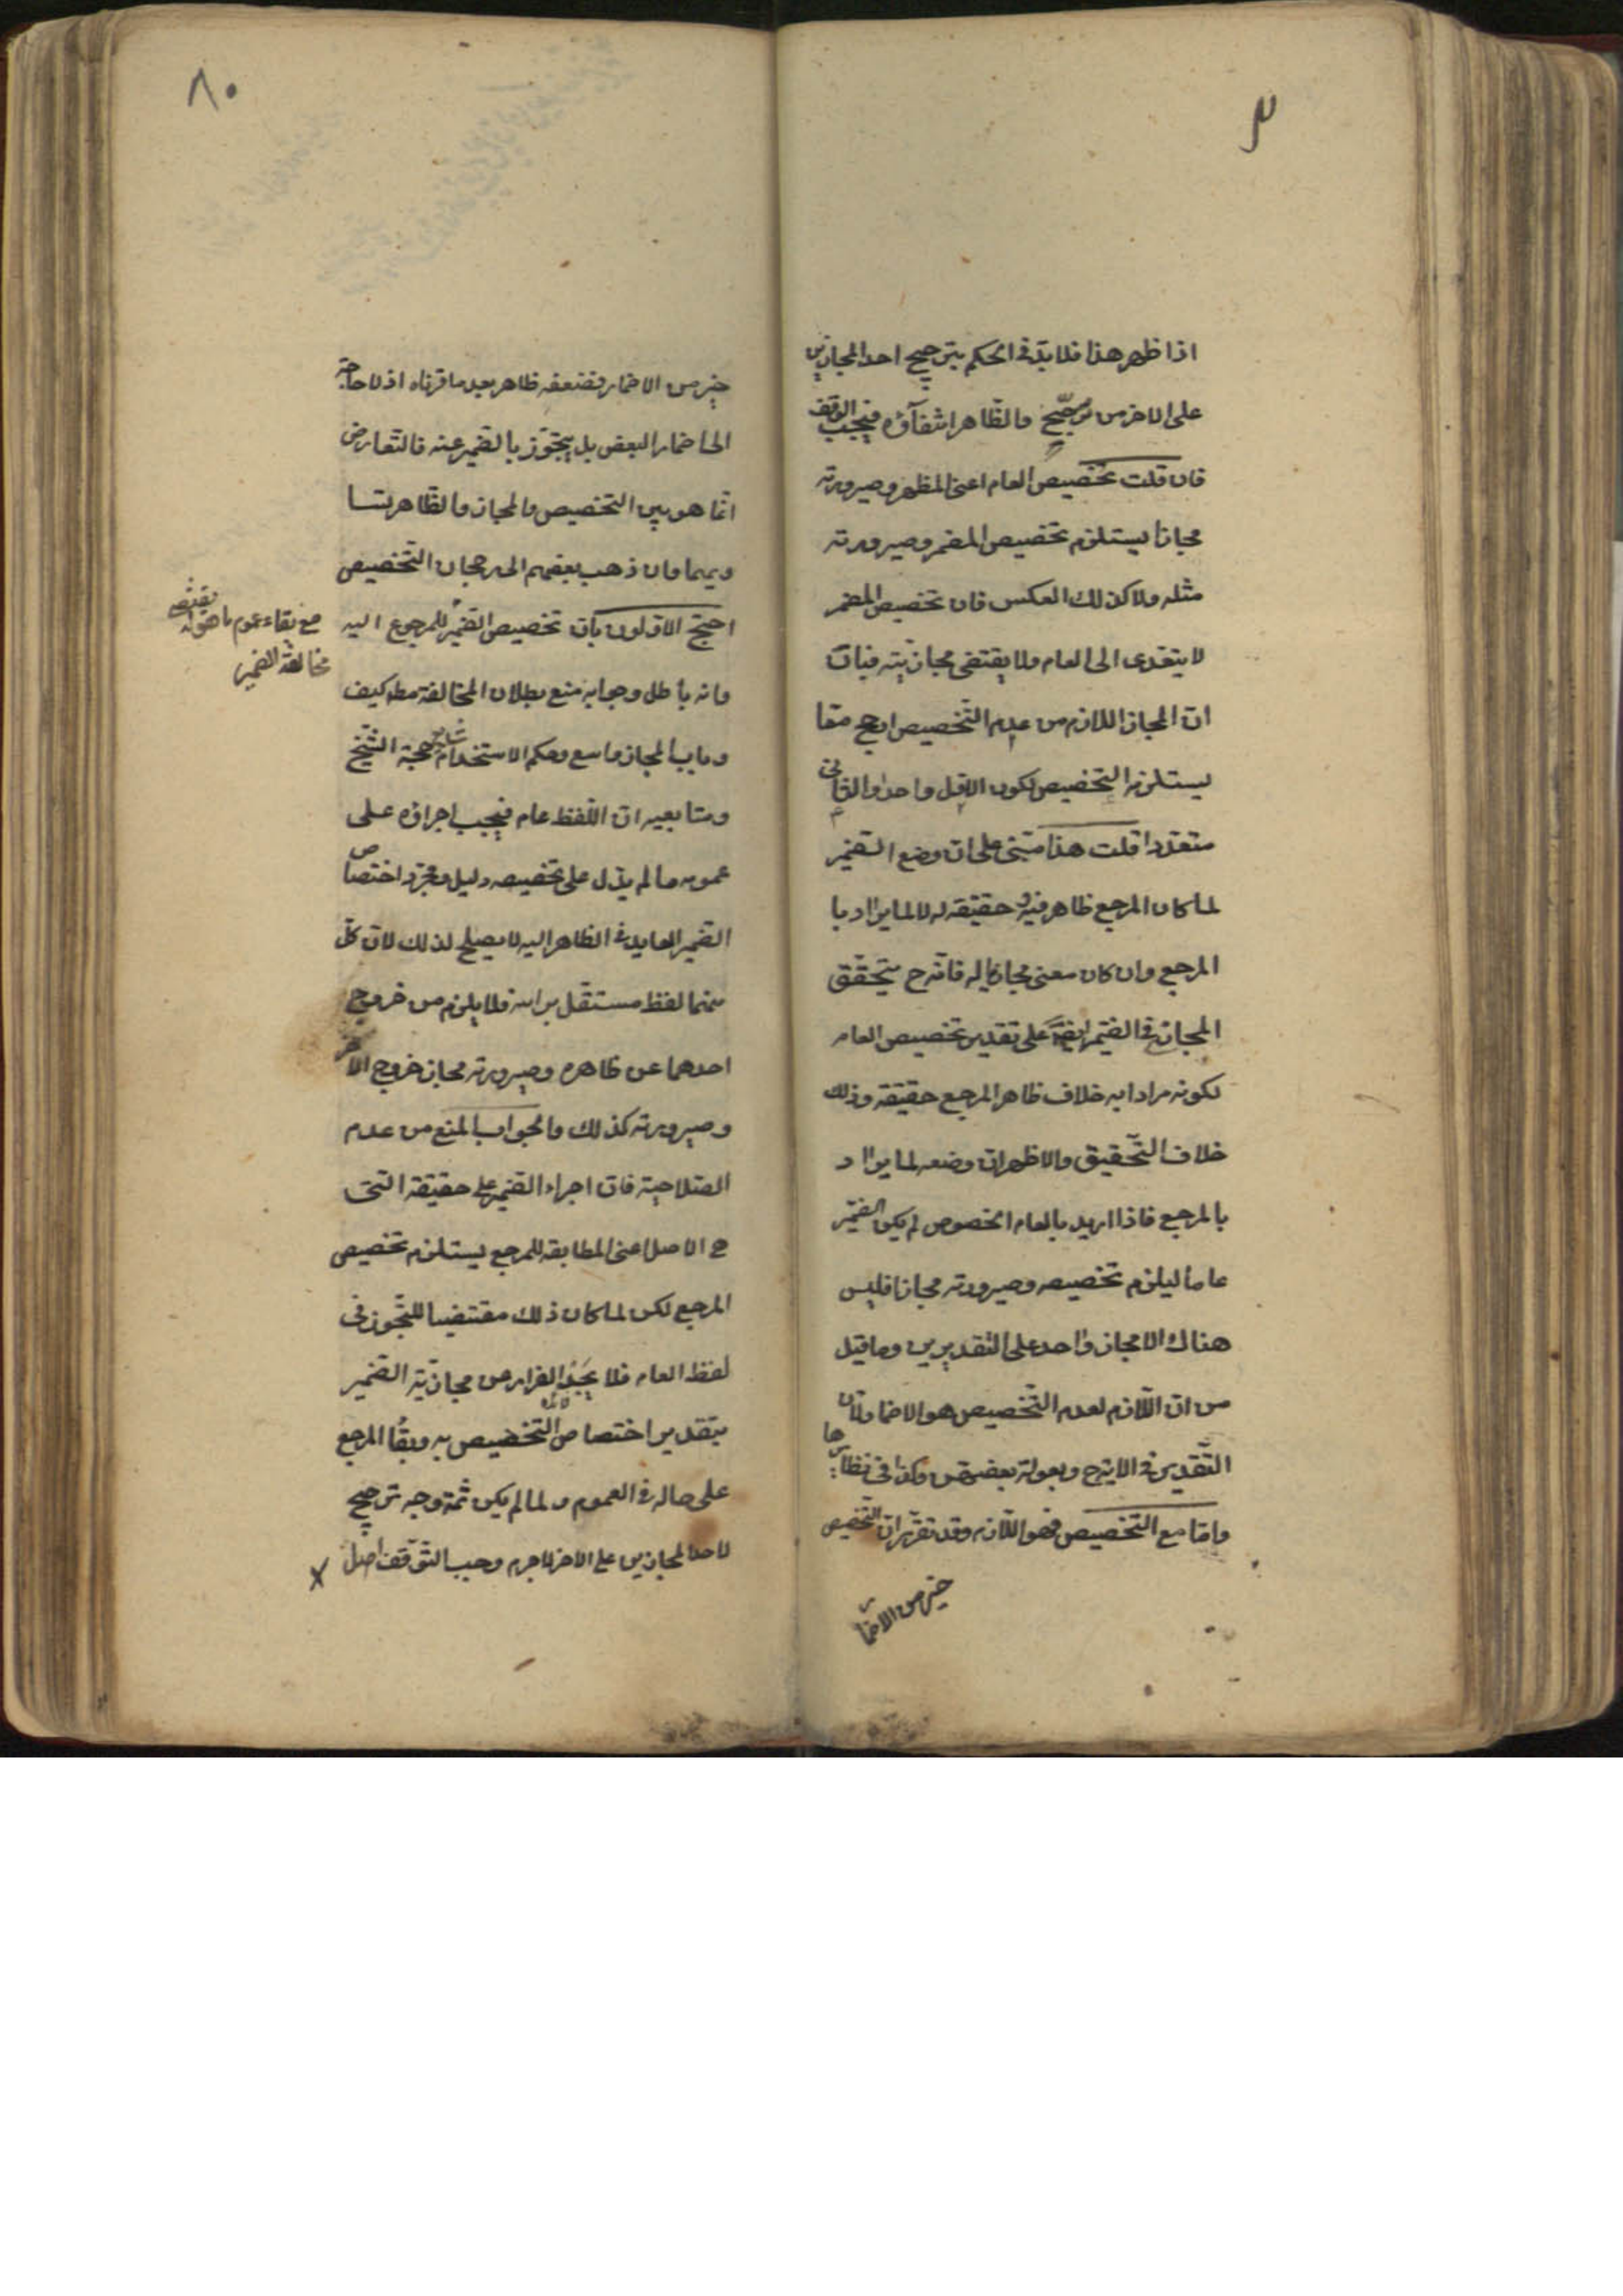 اذا ظهر هذا فلا بدّ فى الحكم بترجيح احد المجازين
على الاخر من مرجّح والظّاهر انتفآؤه فيجب الوقف
فان قلت تخصيص العام اعنى المظهر وصيرورته
مجازا يستلزم تخصيص المضمر وصيرورته
مثله ولا كذلك العكس فان تخصيص المضمر
لا يتعدى الى العام ولا يقتضى مجازيته فبان
ان المجاز اللازم من عدم التّخصيص ارجح ممّا
يستلزمه التّخصيص لكون الاوّل واحدا والثانى
متعددا قلت هذا مبنى على ان وضع الضّمير
لما كان المرجع ظاهر فيه وحقيقة له لا لما يراد با
المرجع وان كان معنى مجازيا له فانّه ح يتحقّق
المجاز فى الضّمير ايضا على تقدير تخصيص العام
لكونه مرادا به خلاف ظاهر المرجع حقيقة وذلك
خلاف التّحقيق والاظهر ان وضعه لما يراد
بالمرجع فاذا اريد بالعام الخصوص لم يكن الضّمير
عاما ليلزم تخصيصه وصيرورته مجازا فليس
هناك الا مجاز واحد على التقديرين وما قيل
من ان اللّازم لعدم التّخصيص هو الاضمار لان
التّقدير فى الاية ح وبعولة بعضهن وكذا فى نظايرها
وامّا مع التّخصيص فهو اللّازم وقد تقرّر ان التّخصيص
خير من الاضمار
٨٠
خير من الاضمار فضعفه ظاهر بعد ما قرناه اذ لا حاجة
الى اضمار البعض بل يتجوّز بالضّمير عنه فالتّعارض
انّما هو بين التّخصيص والمجاز والظّاهر تسا
ويهما وان ذهب بعضهم الى رجحان التّخصيص
احتج الاوّلون بانّ تخصيص الضّمير للمرجوع اليه
مع بقاء عموم ما هو له يقتضى
مخالفة الضمير
وانه باطل وجوابه منع بطلان المخالفة مط كيف
وباب المجاز واسع وحكم الاستخدام شايع حجة الشّيخ
ومتابعيه ان اللّفظ عام فيجب اجراؤه على
عمومه ما لم يدّل على تخصيصه دليل ومجرّد اختصاص
الضّمير العايد فى الظاهر اليه لا يصلح لذلك لان كلّ
منهما لفظ مستقّل براسه فلا يلزم من خروج
احدهما عن ظاهره وصيرورته مجاز خروج الاخر
وصيرورته كذلك والجواب المنع من عدم
الصّلاحيّة فان اجراء الضّمير على حقيقة التى
ح الاصل اعنى المطابقة للمرجع يستلزم تخصيص
المرجع لكن لما كان ذلك مقتضيا للتّجوز فى
لفظ العام فلا يجد الفرار من مجازيّة الضّمير
بتقدير اختصاص التّخصيص به وبقاء المرجع
على حاله فى العموم ولما لم يكن ثمّة وجه ترجيح
لاحد المجازين على الاخر لا جرم وجب التّوقّف اصل